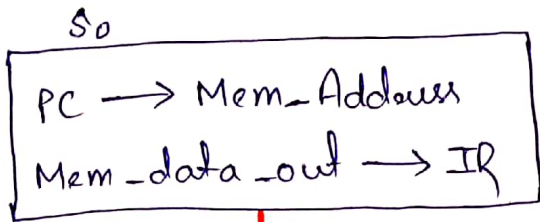 S0
PC → Mem_Address
Mem_data_out → IR